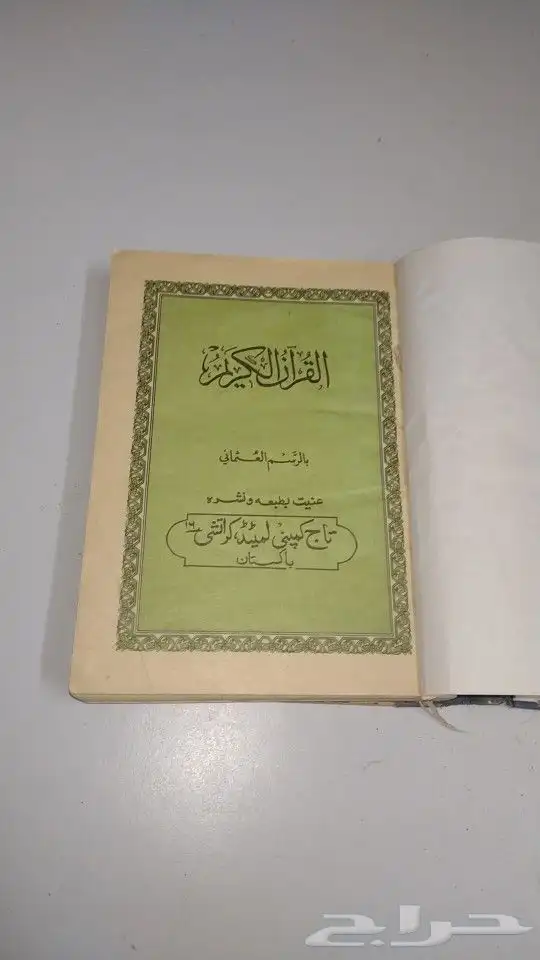 القُرآنُ الكَرِيمُ
بالرَّسم العُثماني
عنيت بطبعه ونشره
تاج كمپنی لمیٹڈ، کراتشی ١٦
باكستان
حراج